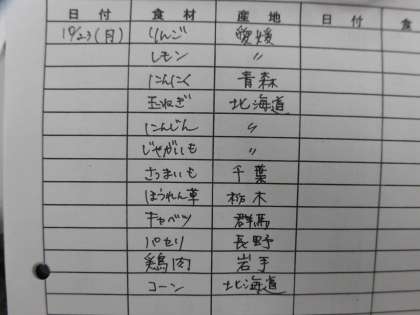 日付 食材 産地 日付 食
10/23(月) りんご 愛媛
レモン 〃
にんにく 青森
玉ねぎ 北海道
にんじん 〃
じゃがいも 〃
さつまいも 千葉
ほうれん草 栃木
キャベツ 群馬
パセリ 長野
鶏肉 岩手
コーン 北海道